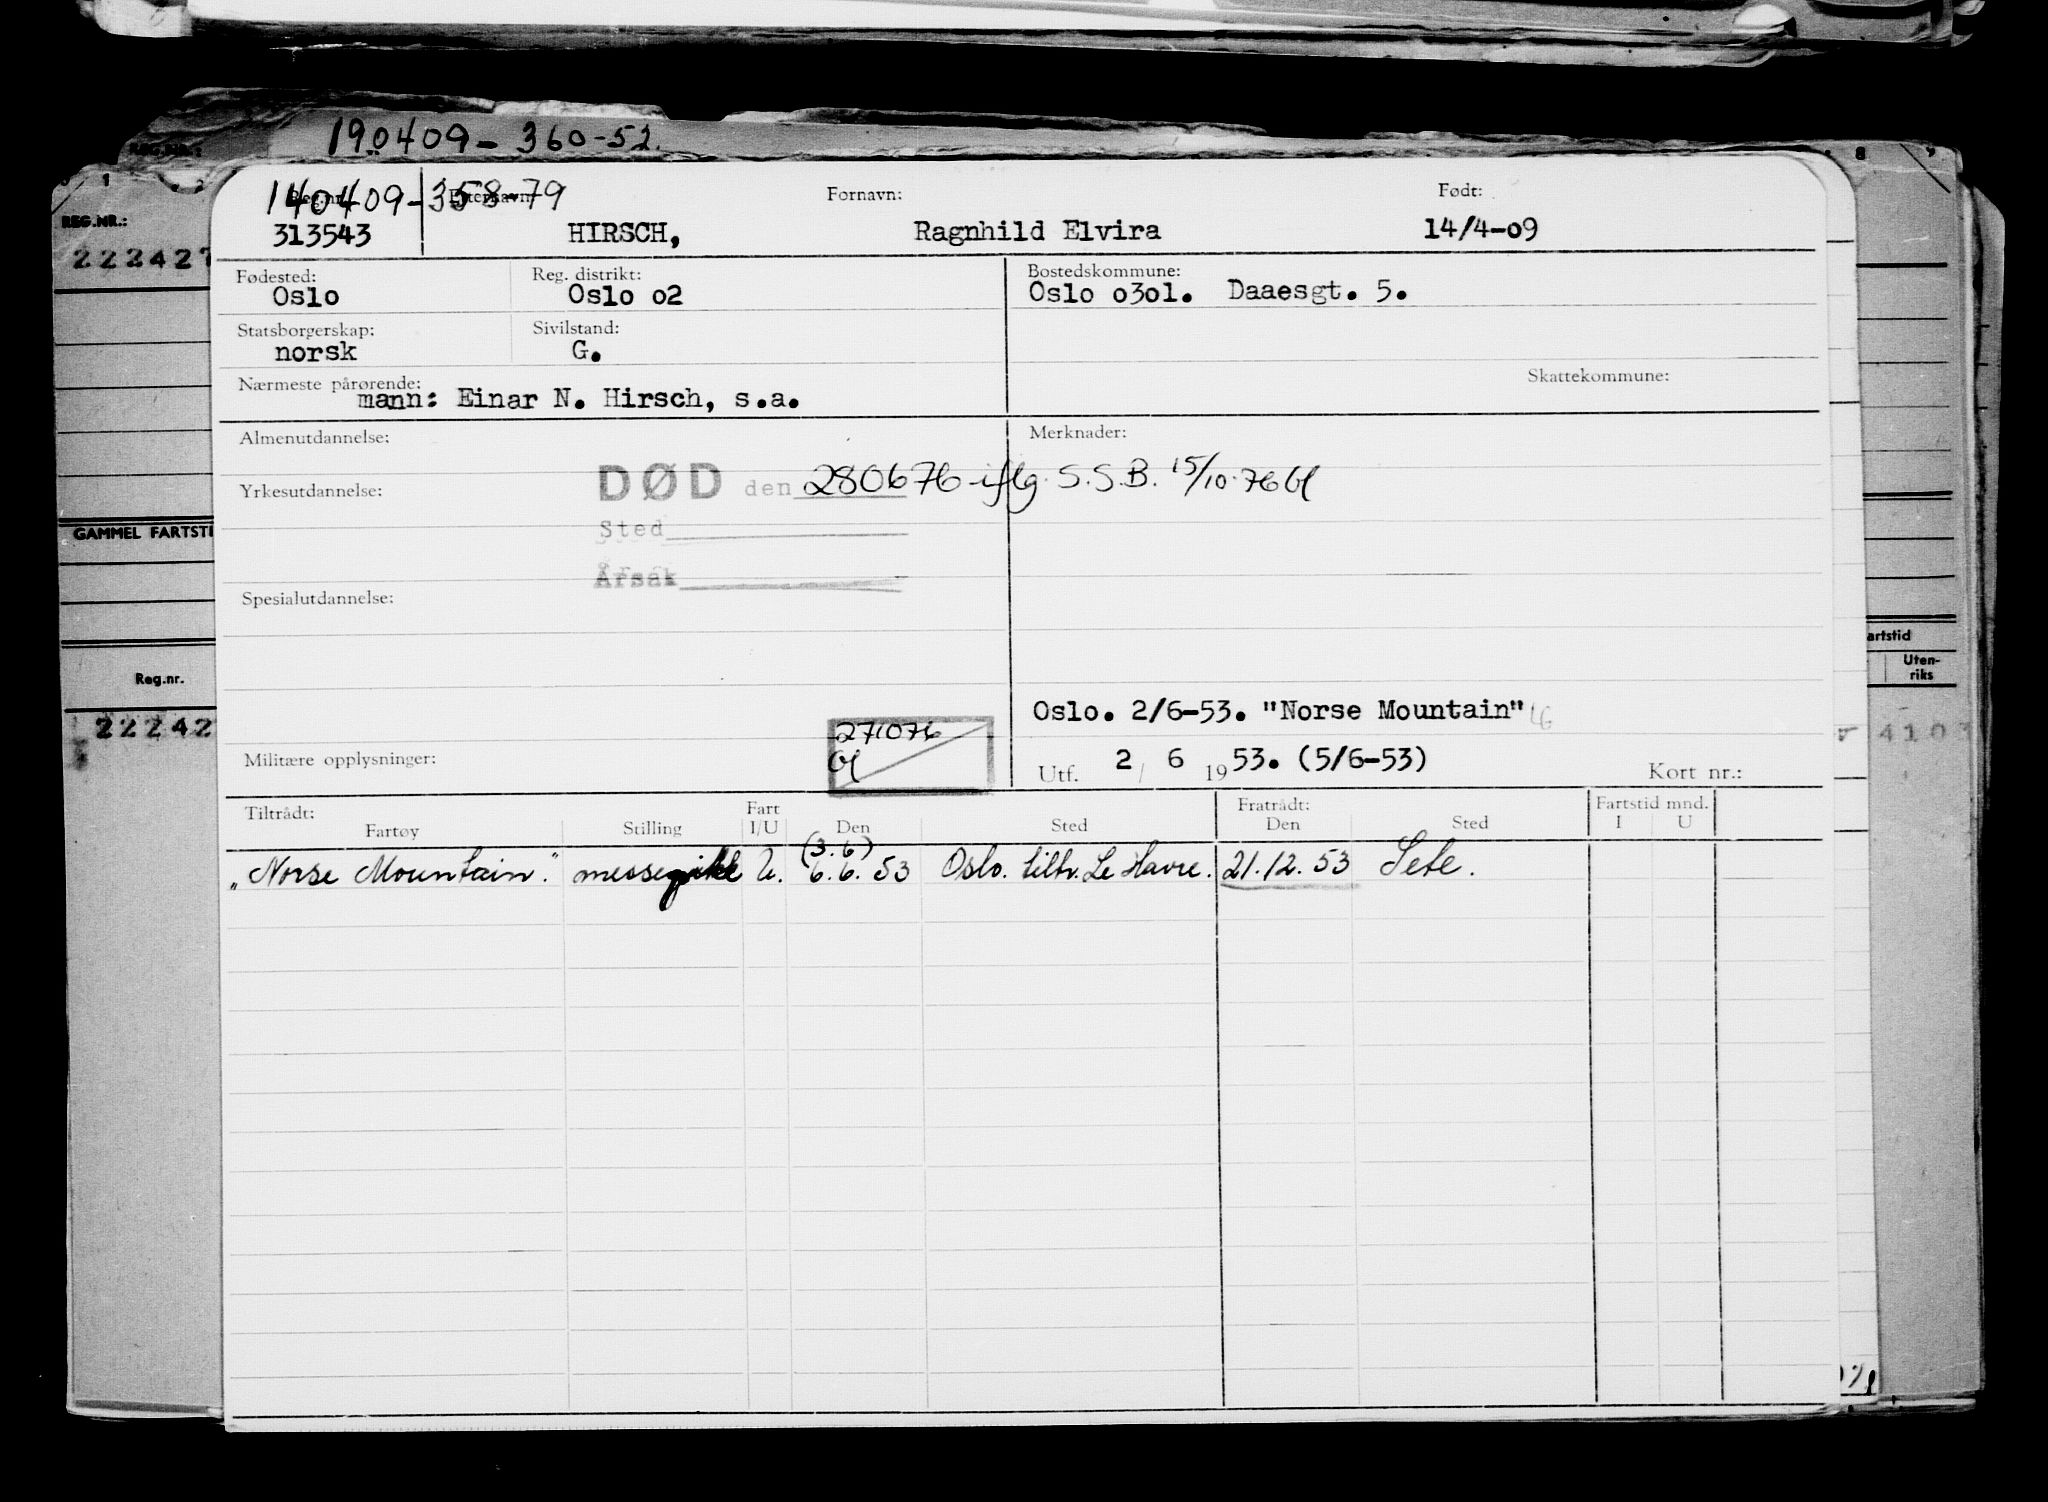 190409-360-52.
REG.NR.:
222427
140409-358-79
Reg.nr. Etternavn: Fornavn: Født:
313543 HIRSCH, Ragnhild Elvira 14/4-09
Fødested: Reg. distrikt: Bostedskommune:
Oslo Oslo o2 Oslo o3o1. Daaesgt. 5.
Statsborgerskap: Sivilstand:
norsk G.
Nærmeste pårørende: Skattekommune:
mann: Einar N. Hirsch, s.a.
Almenutdannelse: Merknader:
Yrkesutdannelse: DØD den 280676 iflg. S.S.B. 15/10.76
Sted
Årsak
GAMMEL FARTSTI
Spesialutdannelse:
artstid
Reg.nr.
Uten-
riks
22242
4103
Oslo. 2/6-53. "Norse Mountain"
271076
Militære opplysninger: Utf. 2/ 6 1953. (5/6-53) Kort nr.:
Tiltrådt: Fart Fratrådt: Fartstid mnd.
Fartøy Stilling I/U Den Sted Den Sted I U
(3.6)
"Norse Mountain." messepike U. 6.6.53 Oslo. tiltr. Le Havre. 21.12.53 Sete.